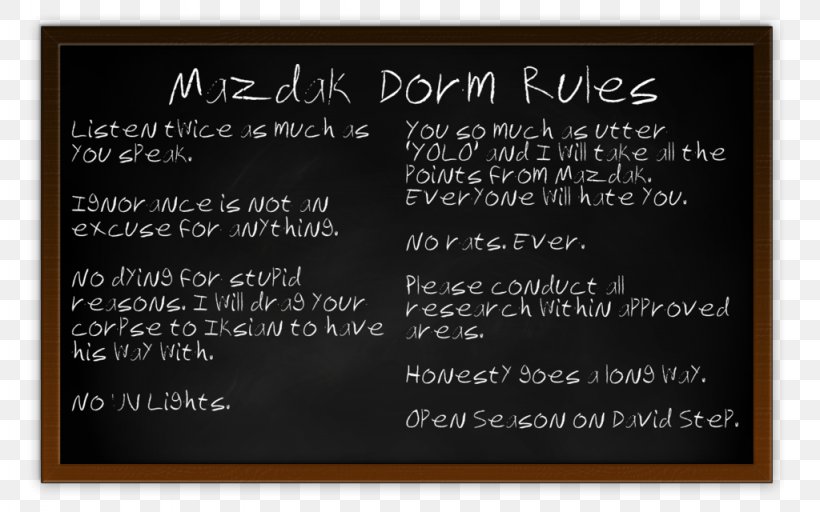 Mazdak Dorm Rules
Listen twice as much as
you speak.
Ignorance is not an
excuse for anything.
No dying for stupid
reasons. I will drag your
corpse to Iksian to have
his way with.
No UV Lights.
You so much as utter
'YOLO' and I will take all the
points from Mazdak.
Everyone will hate you.
No rats. Ever.
Please conduct all
research within approved
areas.
Honesty goes a long way.
Open Season on David Step.